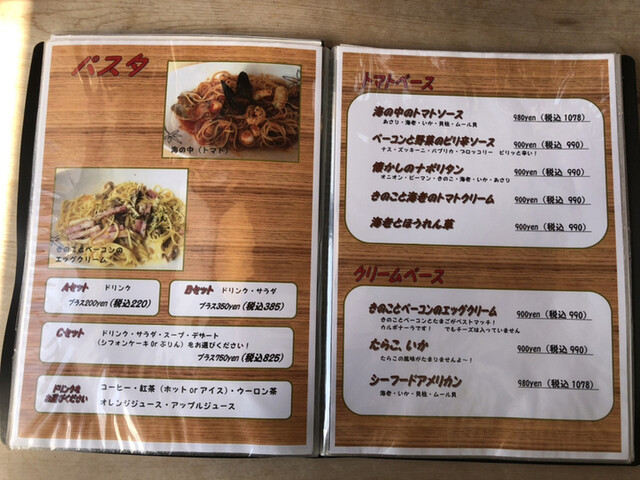 パスタ
海の中(トマト)
きのことベーコンの
エッグクリーム
Aセット ドリンク
プラス200yen(税込220)
Bセット ドリンク・サラダ
プラス350yen(税込385)
Cセット ドリンク・サラダ・スープ・デザート
(シフォンケーキorぷりん)をお選びください!
プラス750yen(税込825)
ドリンクを
お選びください
コーヒー・紅茶(ホットorアイス)・ウーロン茶
オレンジジュース・アップルジュース
トマトベース
海の中のトマトソース 980yen(税込1078)
あさり・海老・いか・貝柱・ムール貝
ベーコンと野菜のピリ辛ソース 900yen(税込 990)
ナス・ズッキーニ・パプリカ・ブロッコリー ピリッと辛い!
懐かしのナポリタン 900yen(税込 990)
オニオン・ピーマン・きのこ・海老・いか・あさり
きのこと海老のトマトクリーム 900yen(税込 990)
海老とほうれん草 900yen(税込 990)
クリームベース
きのことベーコンのエッグクリーム 900yen(税込 990)
きのことベーコンとたまごがベストマッチ!
カルボナーラです! でもチーズは入っていません
たらこ、いか 900yen(税込 990)
たらこの風味がたまりませんよ~!
シーフードアメリカン 980yen(税込 1078)
海老・いか・貝柱・ムール貝